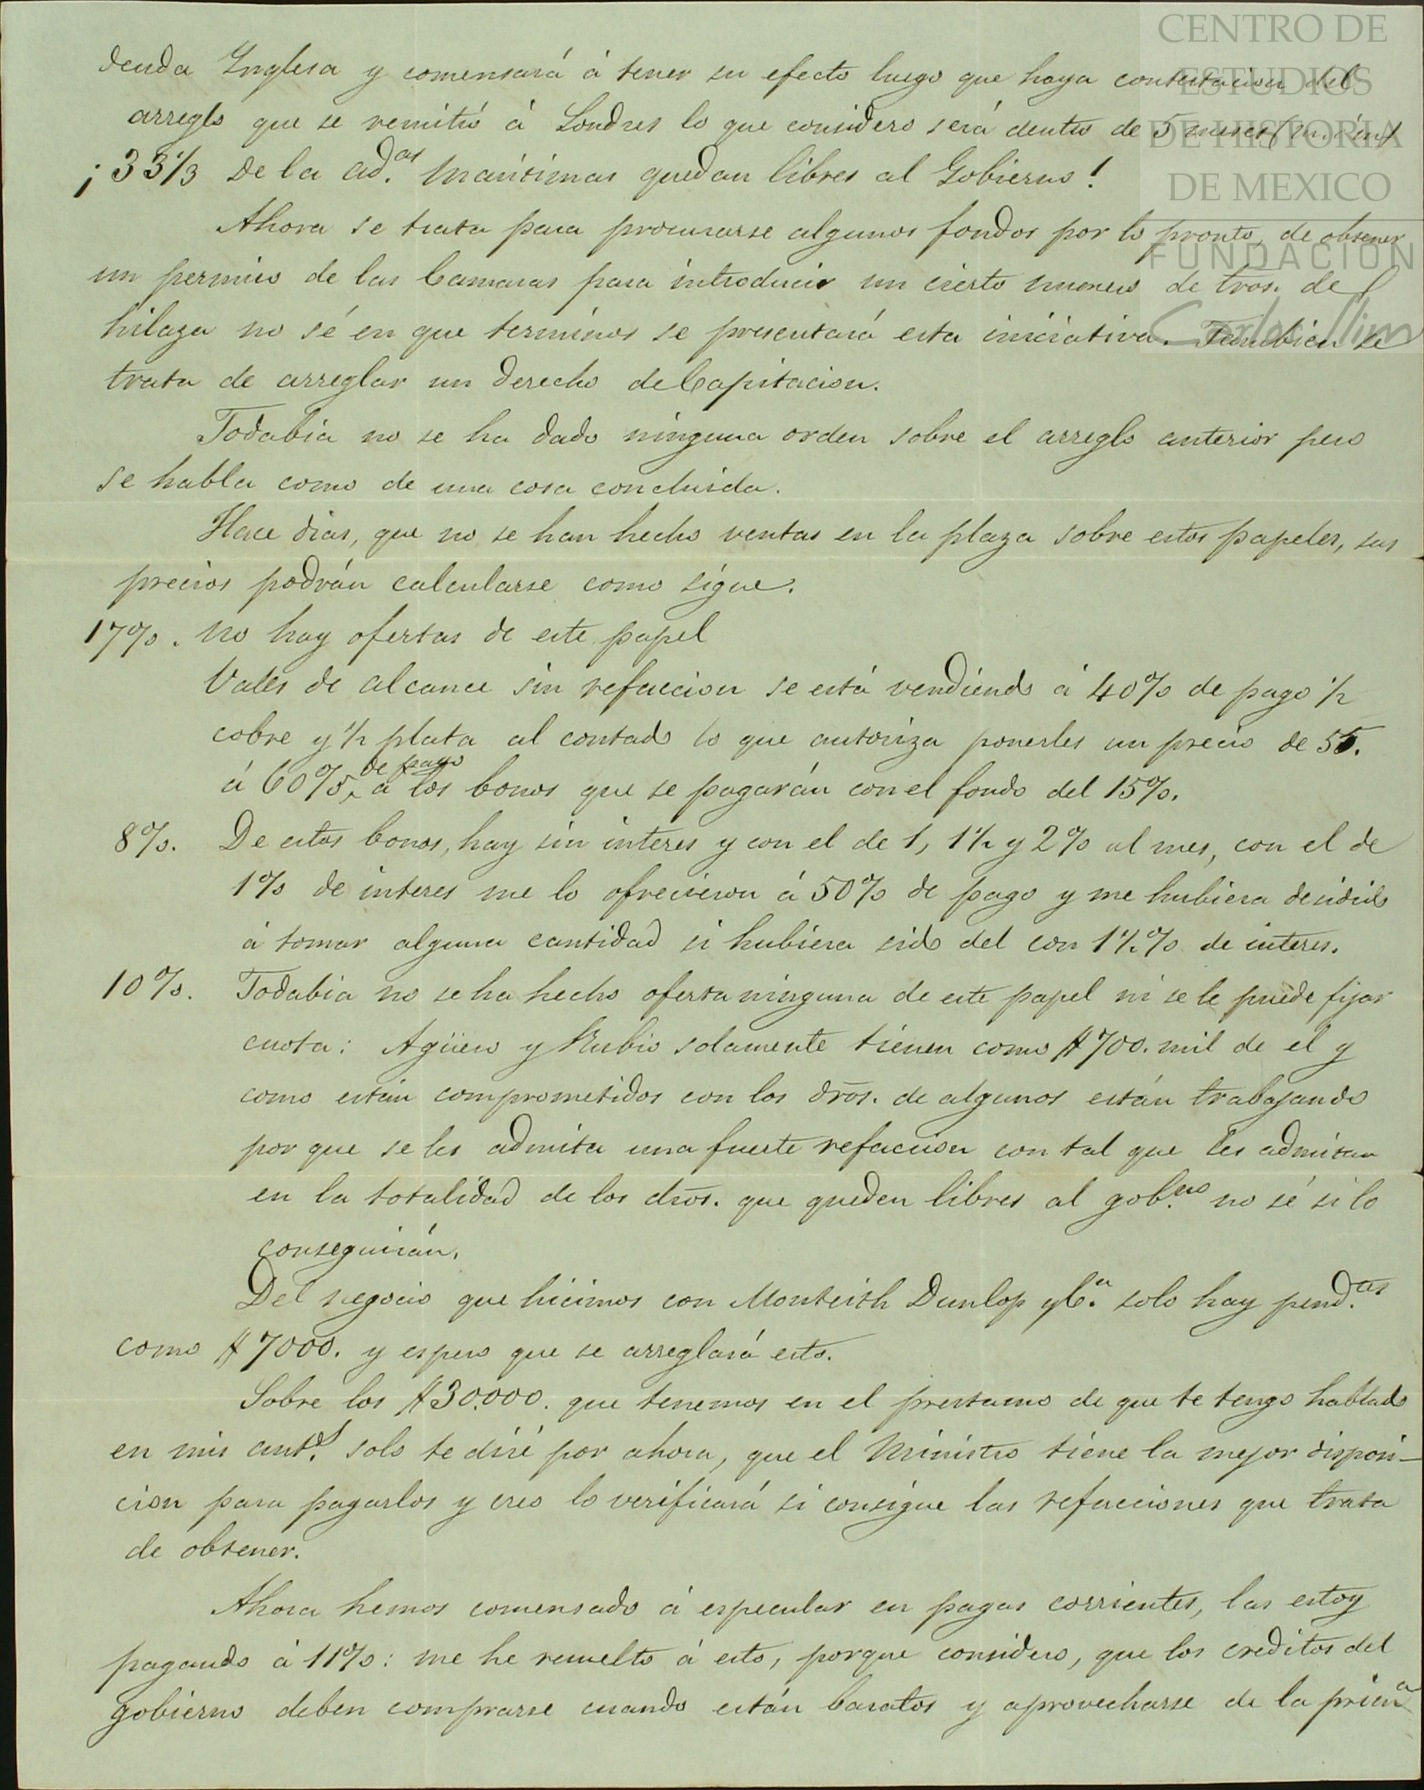 CENTRO DE
ESTUDIOS
DE HISTORIA
DE MEXICO
FUNDACION
Carlos Slim
deuda Ynglesa y comensará á tener su efecto luego que haya contestacion del
arreglo que se remitió á Londres lo que considero será dentro de 5 meses
¡33 1/3 De la ad.as maritimas quedan libres al Gobierno!
Ahora se trata para procurarse algunos fondos por lo pronto, de obtener
un permiso de las Camaras para introducir un cierto numero de tros. de
hilaza no sé en que terminos se presentará esta iniciativa. Tambien se
trata de arreglar un derecho de Capitacion.
Todabia no se ha dado ninguna orden sobre el arreglo anterior pero
se habla como de una cosa concluida.
Hace dias, que no se han hecho ventas en la plaza sobre estos papeles, sus
precios podrán calcularse como sigue.
17%. no hay ofertas de este papel
Vales de alcance sin refaccion se está vendiendo á 40% de pago 1/2
cobre y 1/2 plata al contado lo que autoriza ponerles un precio de 55.
á 60% de pago á los bonos que se pagarán con el fondo del 15%.
8%. De estos bonos, hay sin interes y con el de 1, 1 1/2 y 2% al mes, con el de
1% de interes me lo ofrecieron á 50% de pago y me hubiera desidido
á tomar alguna cantidad si hubiera sido del con 1 1/2% de interes.
10%. Todabia no se ha hecho oferta ninguna de este papel ni se le puede fijar
cuota: Agüero y Rubio solamente tienen como $700. mil de el y
como están comprometidos con los dros. de algunos están trabajando
por que se les admita una fuerte refaccion con tal que les admitan
en la totalidad de los dros. que queden libres al gob.no no sé si lo
conseguirán.
Del negocio que hicimos con Monteith Dunlop y C.a solo hay pend.tes
como $7000. y espero que se arreglará esto.
Sobre los $30.000. que tenemos en el prestamo de que te tengo hablado
en mis ant.s solo te diré por ahora, que el Ministro tiene la mejor disposi-
cion para pagarlos y creo lo verificará si consigue las refacciones que trata
de obtener.
Ahora hemos comensado á especular en pagas corrientes, las estoy
pagando á 11%: me he resuelto á esto, porque considero, que los creditos del
gobierno deben comprarse cuando están baratos y aprovecharse de la